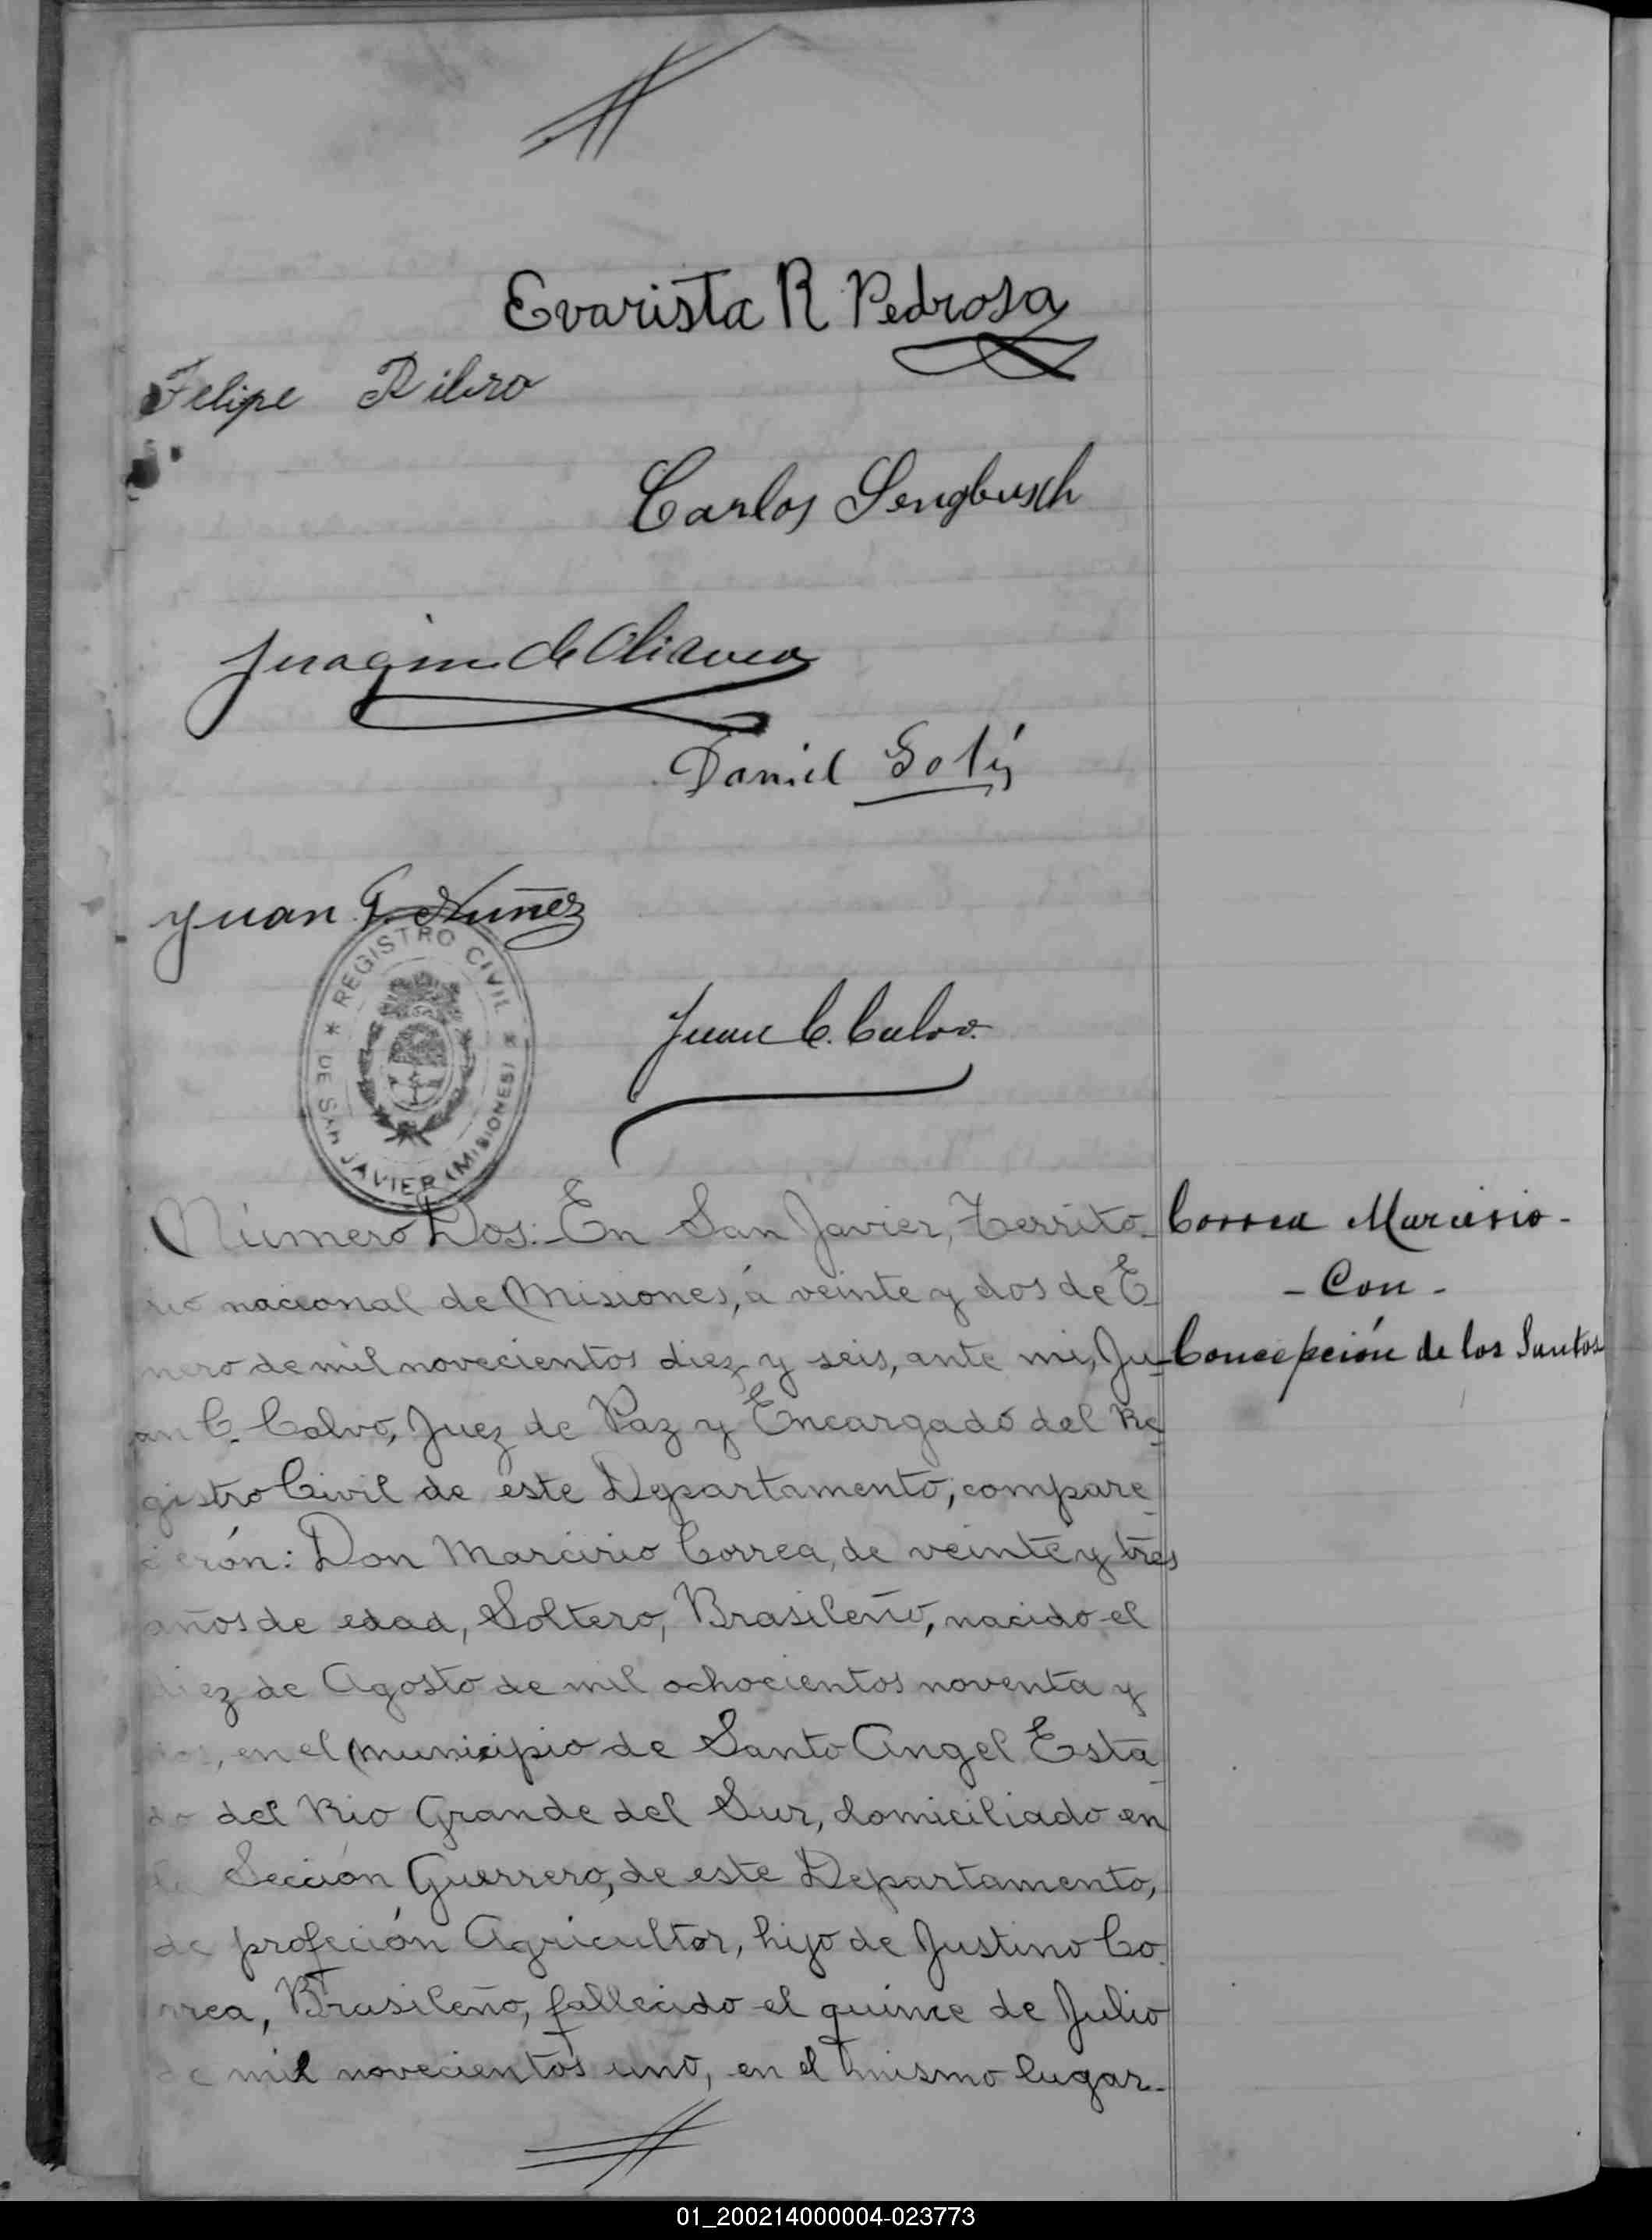 Evarista R Pedrosa
Felipe Ribro
Carlos Sengbusch
Juaqin de Oliavea
Daniel
Juan G. Nuñez
* REGISTRO CIVIL *
DE SAN JAVIER (MISIONES)
Juan C. Calvo.
Número Dos: En San Javier, Territo-
rio nacional de Misiones, á veinte y dos de E
nero de mil novecientos diez y seis, ante mi, Ju-
an C. Calvo, Juez de Paz y Encargado del Re-
gistro Civil de este Departamento, compare-
cierón: Don Marcirio Correa, de veinte y tres
años de edad, Soltero, Brasileño, nacido el
diez de Agosto de mil ochocientos noventa y
dos, en el Municipio de Santo Angel Esta-
do del Rio Grande del Sur, domiciliado en
la Sección Guerrero, de este Departamento,
de profeción Agricultor, hijo de Justino Co-
rrea, Brasileño, fallecido el quince de Julio
de mil novecientos uno, en el mismo lugar.-
Correa Marcirio -
- Con -
Concepción de los Santos
01_200214000004-023773